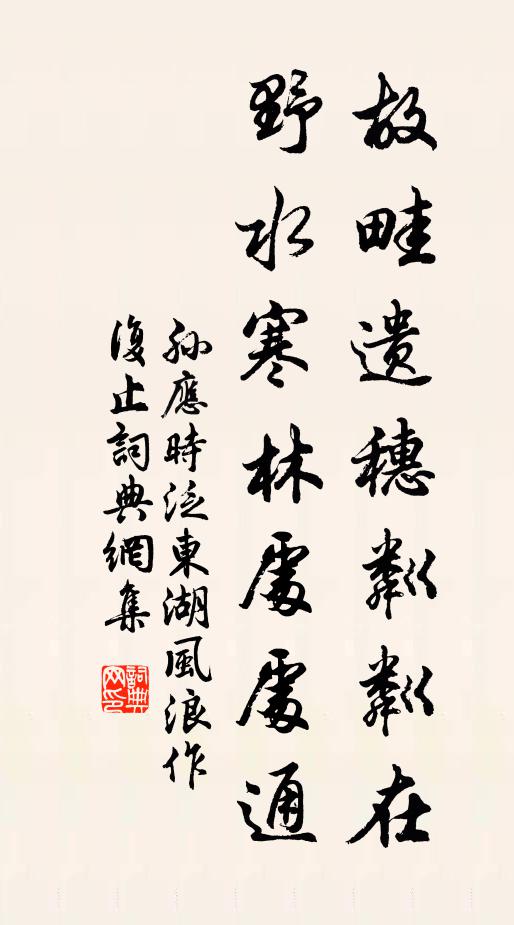 故畦遺穗粼粼在
野水寒林處處通
孫應時泛東湖風浪作
復止詞典網集
詞典网印